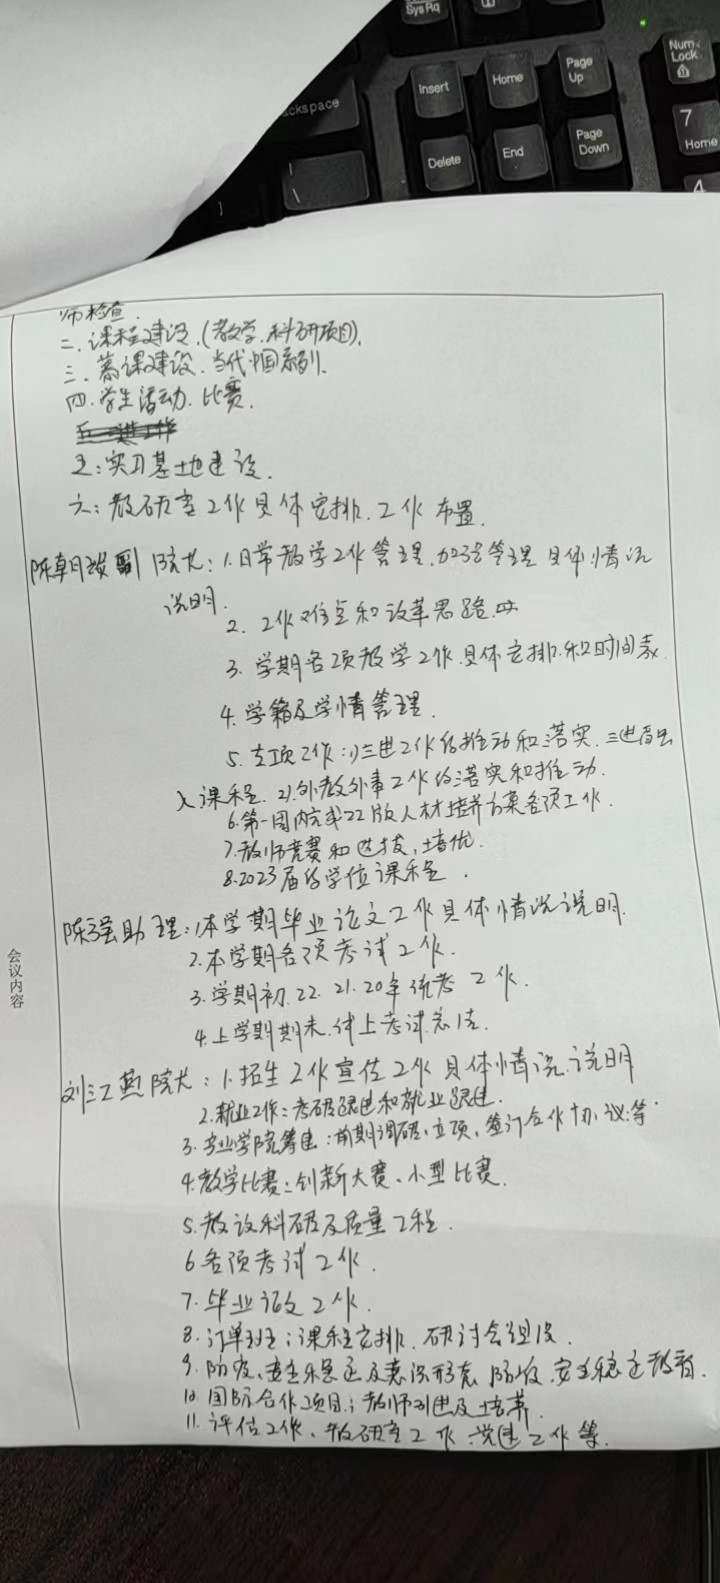 Sys Rq
Backspace
Insert
Home
Page Up
Num Lock
Delete
End
Page Down
7
Home
4
\
师检查.
二.课程建设.(教学.科研项目).
三.慕课建设.当代中国系列.
四.学生活动.比赛.
五:实习基地建设.
六:教研室工作具体安排.工作布置.
副院长:1.日常教学工作管理.加强管理具体情况
说明.
2.工作难点和改革思路.
3.学期各项教学工作具体安排和时间表.
4.学籍及学情管理.
5.专项工作:1)三进工作的推动和落实.三进
入课程.2).外教外事工作的落实和推动.
6.第一周内完成22版人才培养方案各项工作.
7.教师竞赛和选拔,培优.
8.2023届的学位课程.
会议内容
陈强助理:1.本学期毕业论文工作具体情况说明.
2.本学期各项考试工作.
3.学期初.22.21.20年统考工作.
4.上学期期末.线上考试总结.
刘江燕院长:1.招生工作宣传工作具体情况.说明
2.就业工作:考研跟进和就业跟进.
3.专业学院筹建:前期调研、立项、签订合作协议等.
4.教学比赛:创新大赛、小型比赛.
5.教改科研及质量工程.
6.各项考试工作.
7.毕业论文工作.
8.订单班:课程安排.研讨会组段.
9.防疫、及意识形态 防疫、安全稳定教育.
10.国际合作项目;教师引进及培养.
11.评估工作、教研室工作.党建工作等.